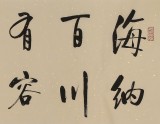 海纳
百川
有容